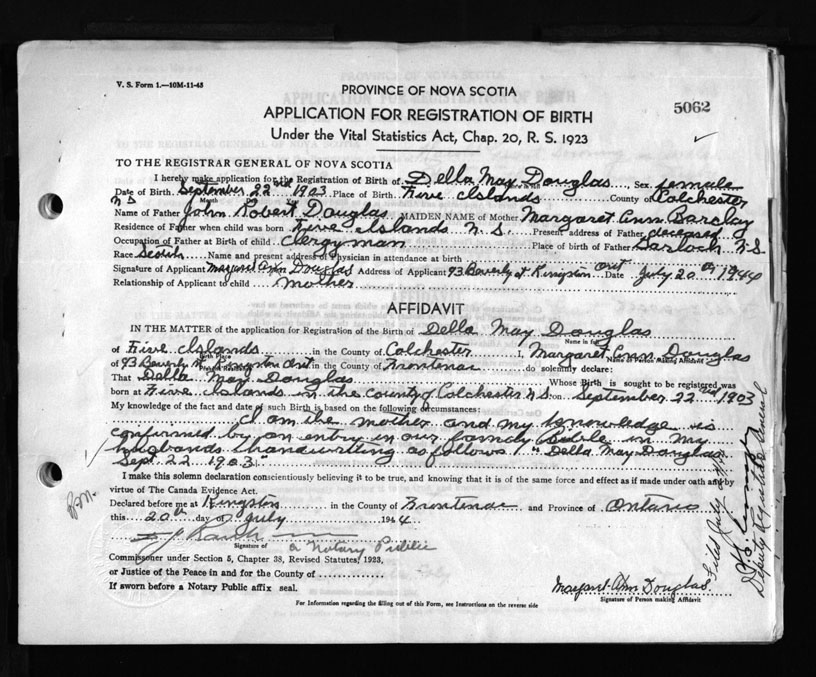 V. S. Form 1.—10M-11-43
PROVINCE OF NOVA SCOTIA
5062
APPLICATION FOR REGISTRATION OF BIRTH
Under the Vital Statistics Act, Chap. 20, R. S. 1923
TO THE REGISTRAR GENERAL OF NOVA SCOTIA
I hereby make application for the Registration of Birth of Della May Douglas, Sex female
Date of Birth September 22nd 1903 Place of Birth Five Islands County of Colchester
N S
Name of Father John Robert Douglas MAIDEN NAME of Mother Margaret Ann Barclay
Residence of Father when child was born Five Islands N.S. Present address of Father deceased
Occupation of Father at Birth of child Clergyman Place of birth of Father N.S.
Race Scotch Name and present address of Physician in attendance at birth
Signature of Applicant Margaret Ann Douglas Address of Applicant 93 Beverly St Kingston Ont Date July 20th 1944
Relationship of Applicant to child mother
AFFIDAVIT
IN THE MATTER of the application for Registration of the Birth of Della May Douglas
Name in full
of Five Islands in the County of Colchester I, Margaret Ann Douglas
Birth Place
of 93 Beverly St Kingston Ont in the County of Frontenac do solemnly declare:
That Della May Douglas Whose Birth is sought to be registered was
born at Five Islands in the County of Colchester N.S. on September 22nd 1903
My knowledge of the fact and date of such Birth is based on the following circumstances:
I am the mother and my knowledge is
confirmed by an entry in our family bible in my
husbands handwriting as follows: "Della May Douglas
Sept. 22 1903"
I make this solemn declaration conscientiously believing it to be true, and knowing that it is of the same force and effect as if made under oath and by
virtue of The Canada Evidence Act.
Declared before me at Kingston in the County of Frontenac and Province of Ontario
this 20th day of July 1944.
Signature of a Notary Public
Commissioner under Section 5, Chapter 38, Revised Statutes, 1923,
or Justice of the Peace in and for the County of
If sworn before a Notary Public affix seal.
Margaret Ann Douglas
Signature of Person making Affidavit
For Information regarding the filling out of this Form, see Instructions on the reverse side
Filed July
Deputy Registrar General